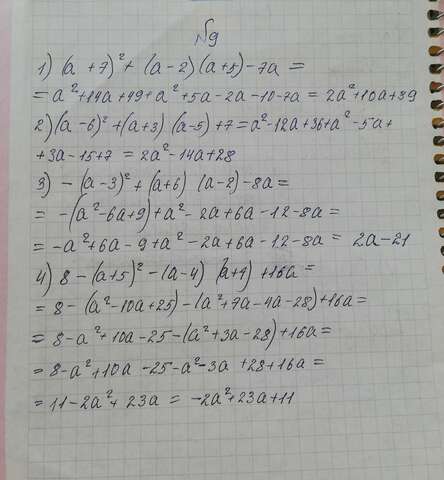 №9
1) (a+7)²+(a-2)(a+5)-7a =
= a²+14a+49+a²+5a-2a-10-7a = 2a²+10a+39
2) (a-6)²+(a+3)(a-5)+7 = a²-12a+36+a²-5a+
+3a-15+7 = 2a²-14a+28
3) -(a-3)²+(a+6)(a-2)-8a =
= -(a²-6a+9)+a²-2a+6a-12-8a =
= -a²+6a-9+a²-2a+6a-12-8a = 2a-21
4) 8-(a+5)²-(a-4)(a+7)+16a =
= 8-(a²-10a+25)-(a²+7a-4a-28)+16a =
= 8-a²+10a-25-(a²+3a-28)+16a =
= 8-a²+10a-25-a²-3a+28+16a =
= 11-2a²+23a = -2a²+23a+11